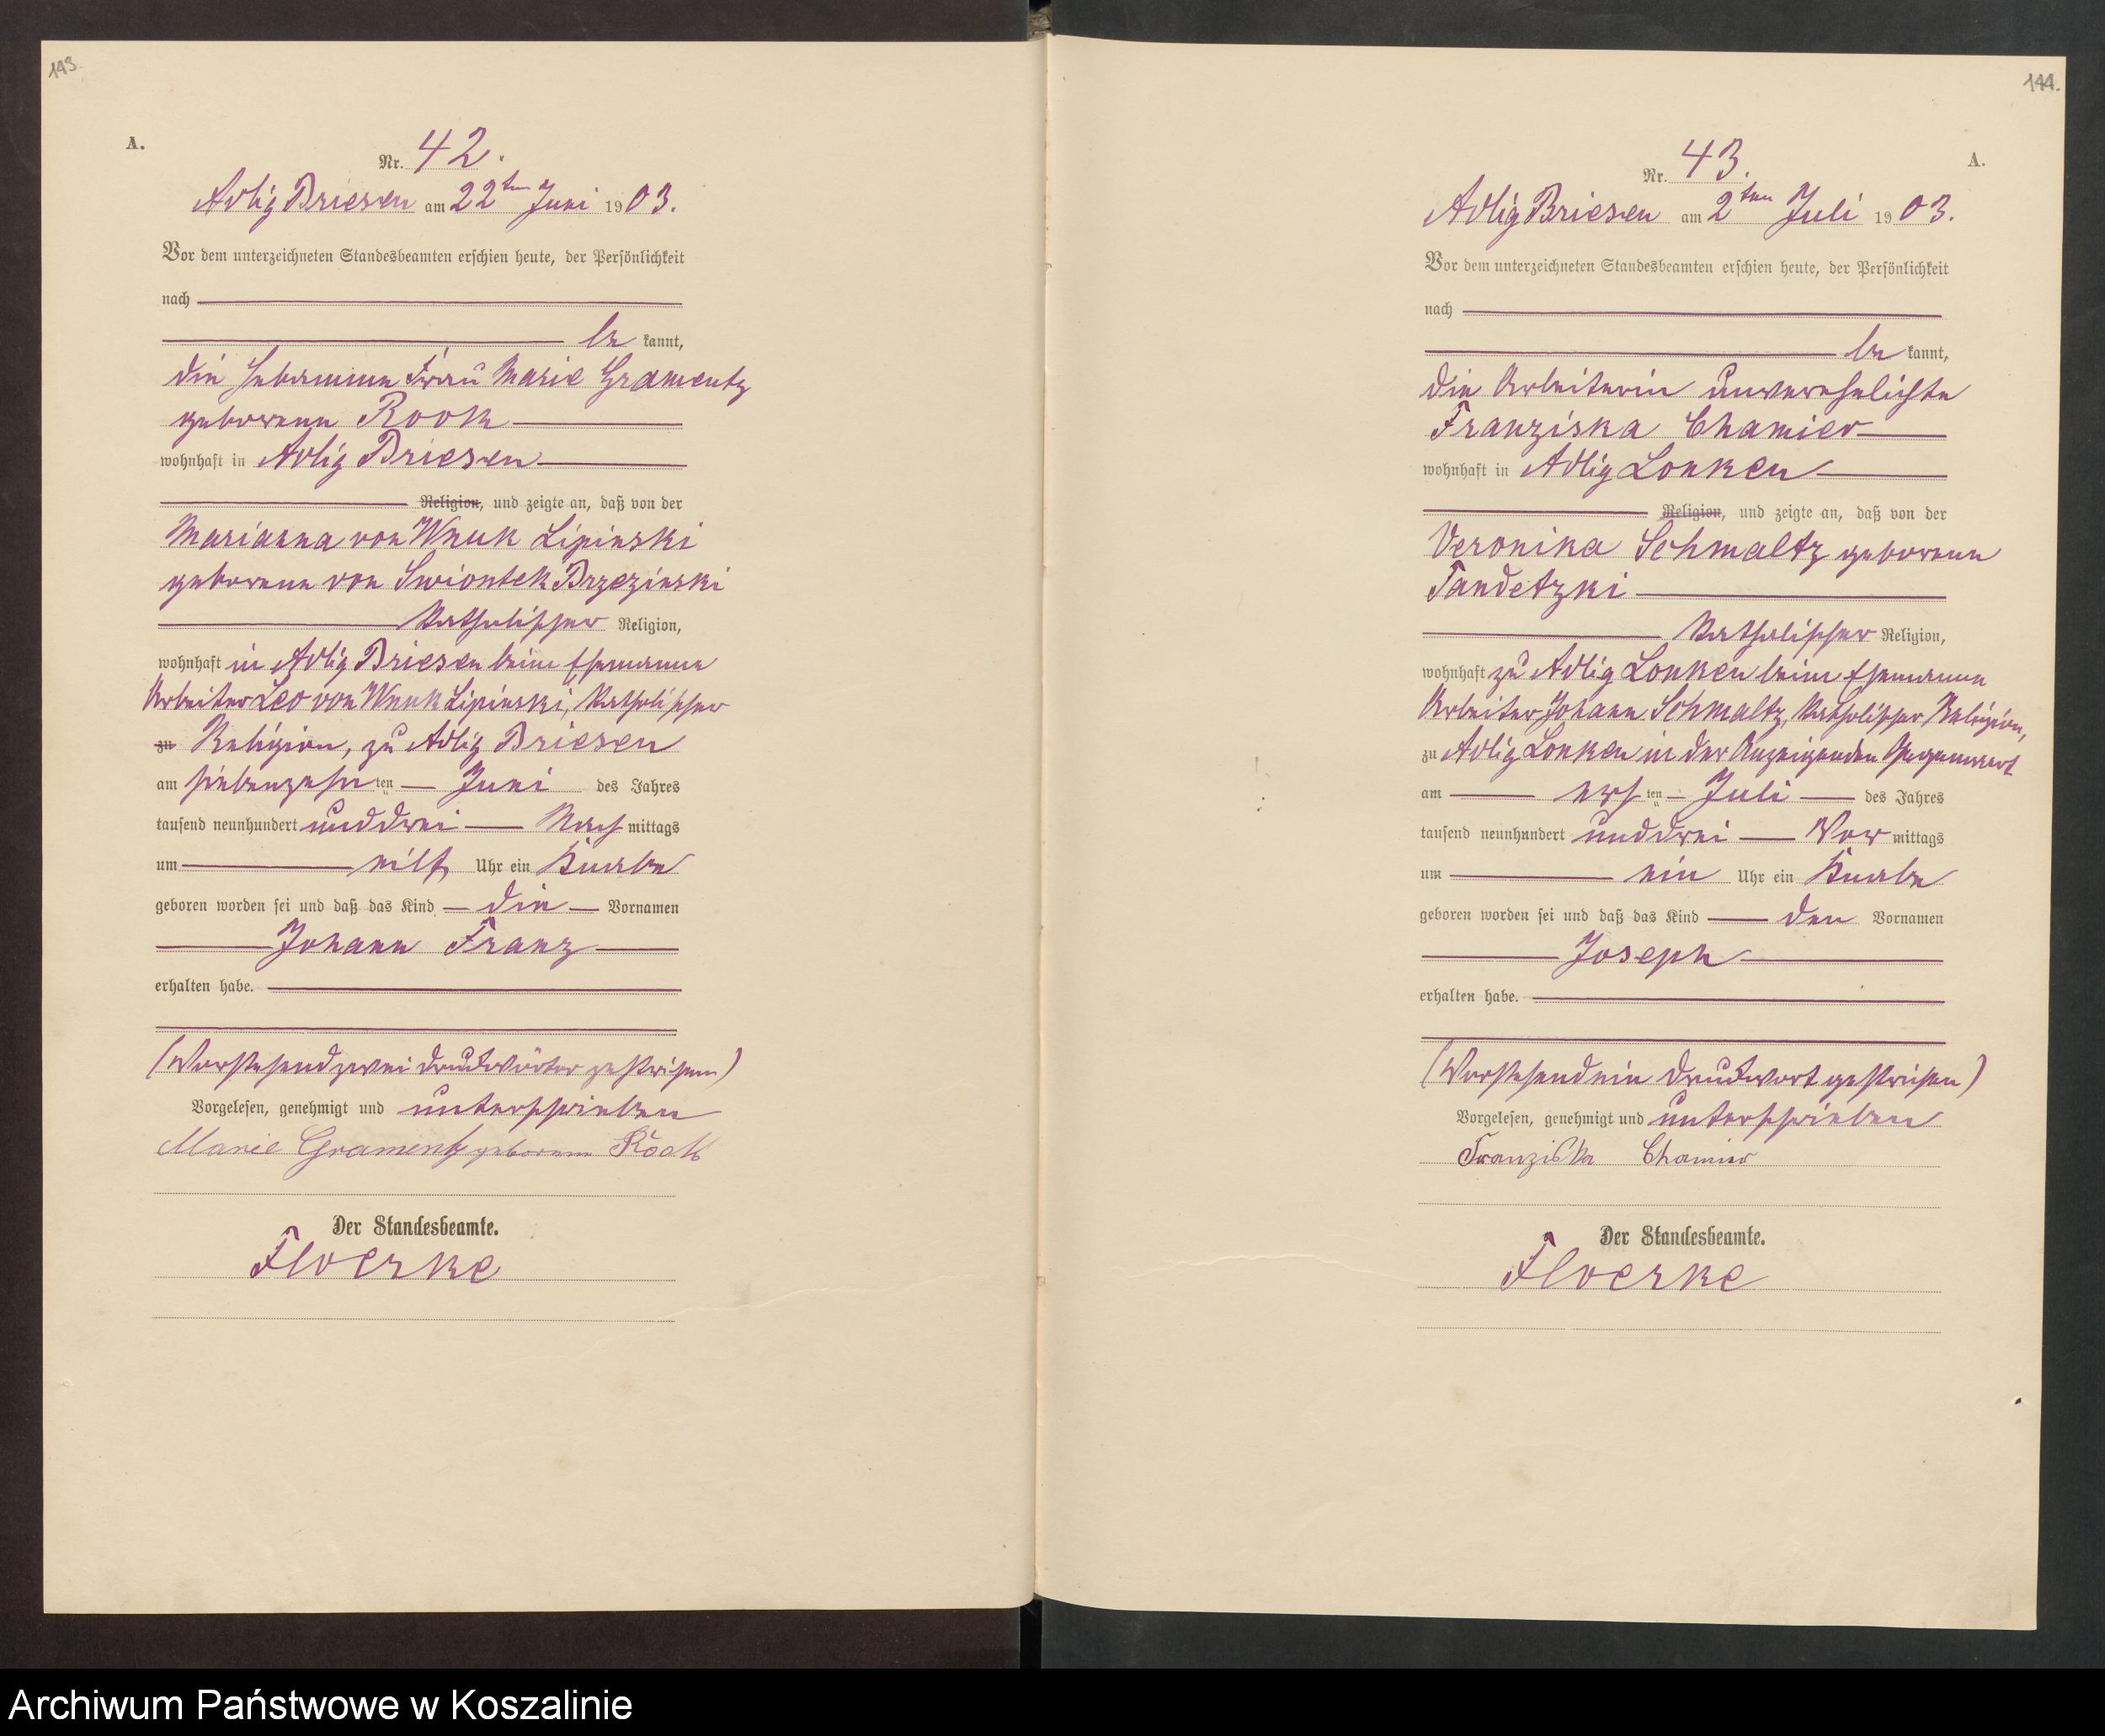 143.
A.
Nr. 42.
Adlig Briesen am 22ten Juni 1903.
Vor dem unterzeichneten Standesbeamten erschien heute, der Persönlichkeit
nach
be kannt,
die Hebamme Frau Marie Gramentz
geborene Rook
wohnhaft in Adlig Briesen
Religion, und zeigte an, daß von der
Marianna von Wnuk Lipinski
geborene von Swiontek Brzezinski
katholischer Religion,
wohnhaft in Adlig Briesen beim Ehemanne
Arbeiter Leo von Wnuk Lipinski, katholischer
zu Religion, zu Adlig Briesen
am siebenzehnten Juni des Jahres
tausend neunhundert unddrei Nachmittags
um elf Uhr ein Knabe
geboren worden sei und daß das Kind die Vornamen
Johann Franz
erhalten habe.
(Vorstehend zwei Druckwörter gestrichen)
Vorgelesen, genehmigt und unterschrieben
Marie Gramentz geborene Rook
Der Standesbeamte.
Floerke
144.
A.
Nr. 43.
Adlig Briesen am 2ten Juli 1903.
Vor dem unterzeichneten Standesbeamten erschien heute, der Persönlichkeit
nach
be kannt,
die Arbeiterin unverehelichte
Franziska Chamier
wohnhaft in Adlig Lonken
Religion, und zeigte an, daß von der
Veronika Schmaltz geborene
Tandetzki
katholischer Religion,
wohnhaft zu Adlig Lonken beim Ehemanne
Arbeiter Johann Schmaltz, katholischer Religion,
zu Adlig Lonken in der Anzeigenden Gegenwart
am ersten Juli des Jahres
tausend neunhundert unddrei Vormittags
um ein Uhr ein Knabe
geboren worden sei und daß das Kind den Vornamen
Joseph
erhalten habe.
(Vorstehend ein Druckwort gestrichen)
Vorgelesen, genehmigt und unterschrieben
Franziska Chamier
Der Standesbeamte.
Floerke
Archiwum Państwowe w Koszalinie